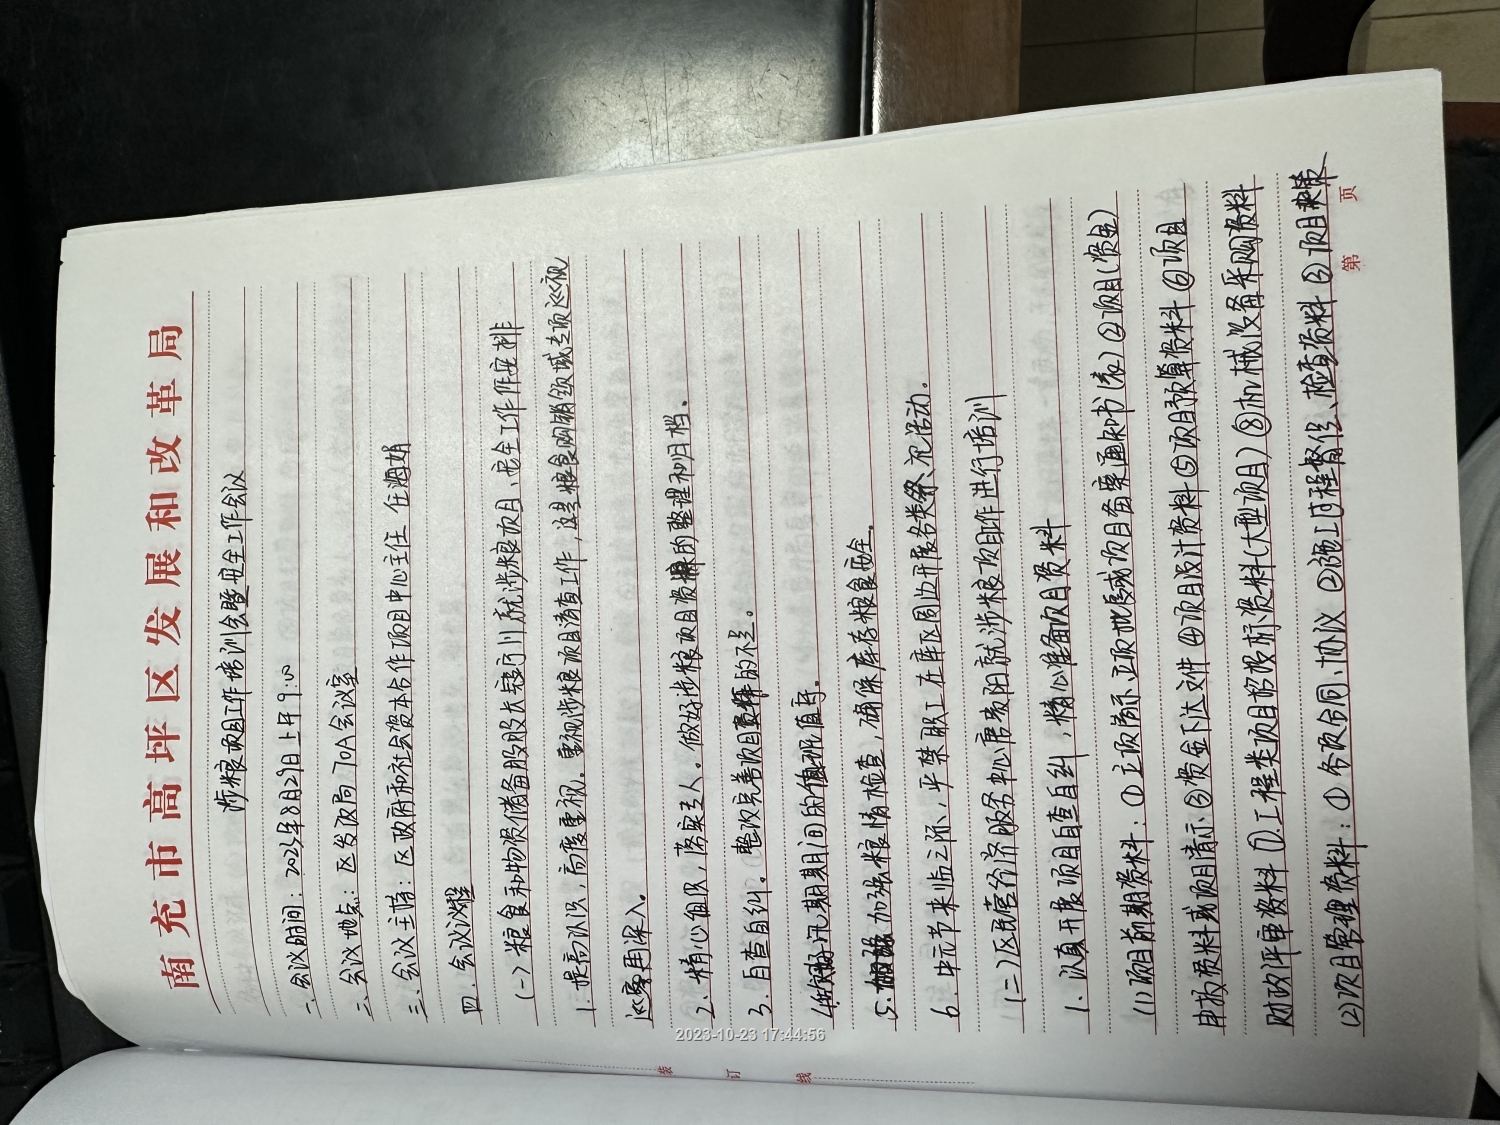 南充市高坪区发展和改革局
涉粮项目工作培训会暨安全工作会议
一、会议时间：2023年8月29日上午9:00
二、会议地点：区发改局701会议室
三、会议主持：区政府和社会资本合作项目中心主任 任海娟
四、会议议程
(一)粮食和物资储备股股长 就涉粮项目、安全工作作安排
1. 提高认识，高度重视。重视涉粮项目清查工作，这是粮食购销领域专项巡视
巡察再深入。
2. 精心组织，落实专人。做好涉粮项目资料的整理和归档。
3. 自查自纠。整改完善项目资料的不足。
4. 做好汛期期间的值班值守。
5. 加强粮情检查，确保库存粮食安全。
6. 中元节来临之际，严禁职工在库区周边开展各类祭祀活动。
(二)区民营经济服务中心唐贵阳就涉粮项目工作进行培训
1. 认真开展项目自查自纠，精心准备项目资料
(1)项目前期资料：①立项请示、立项批复或项目备案通知书(表)②项目(资金)
申报资料或项目请示③资金下达文件④项目设计资料⑤项目预算资料⑥项目
财政评审资料⑦工程类项目招投标资料(大型项目)⑧机械设备采购资料
(2)项目管理资料：①各项合同、协议②施工日程督促、检查资料③项目决策
第 页
装
订
线
2023-10-23 17:44:56